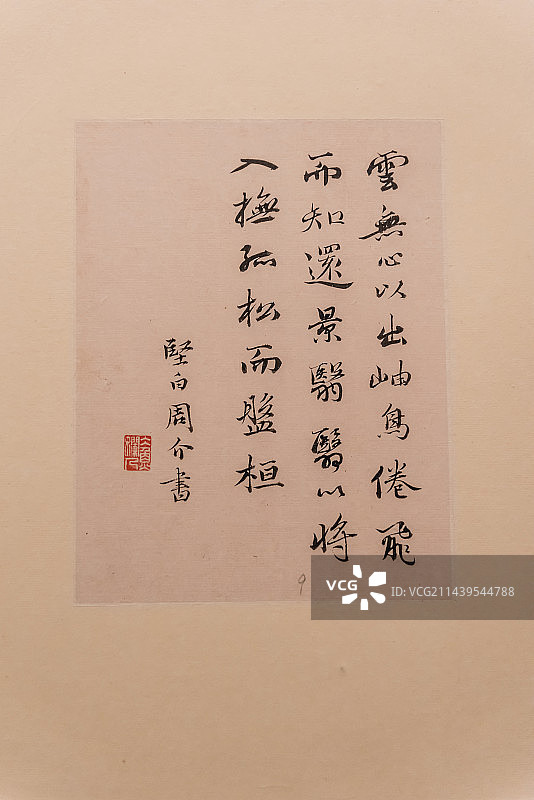 雲無心以出岫鳥倦飛
而知還景翳翳以將
入撫孤松而盤桓
堅白周介書
9
VCG
ID: VCG211439544788